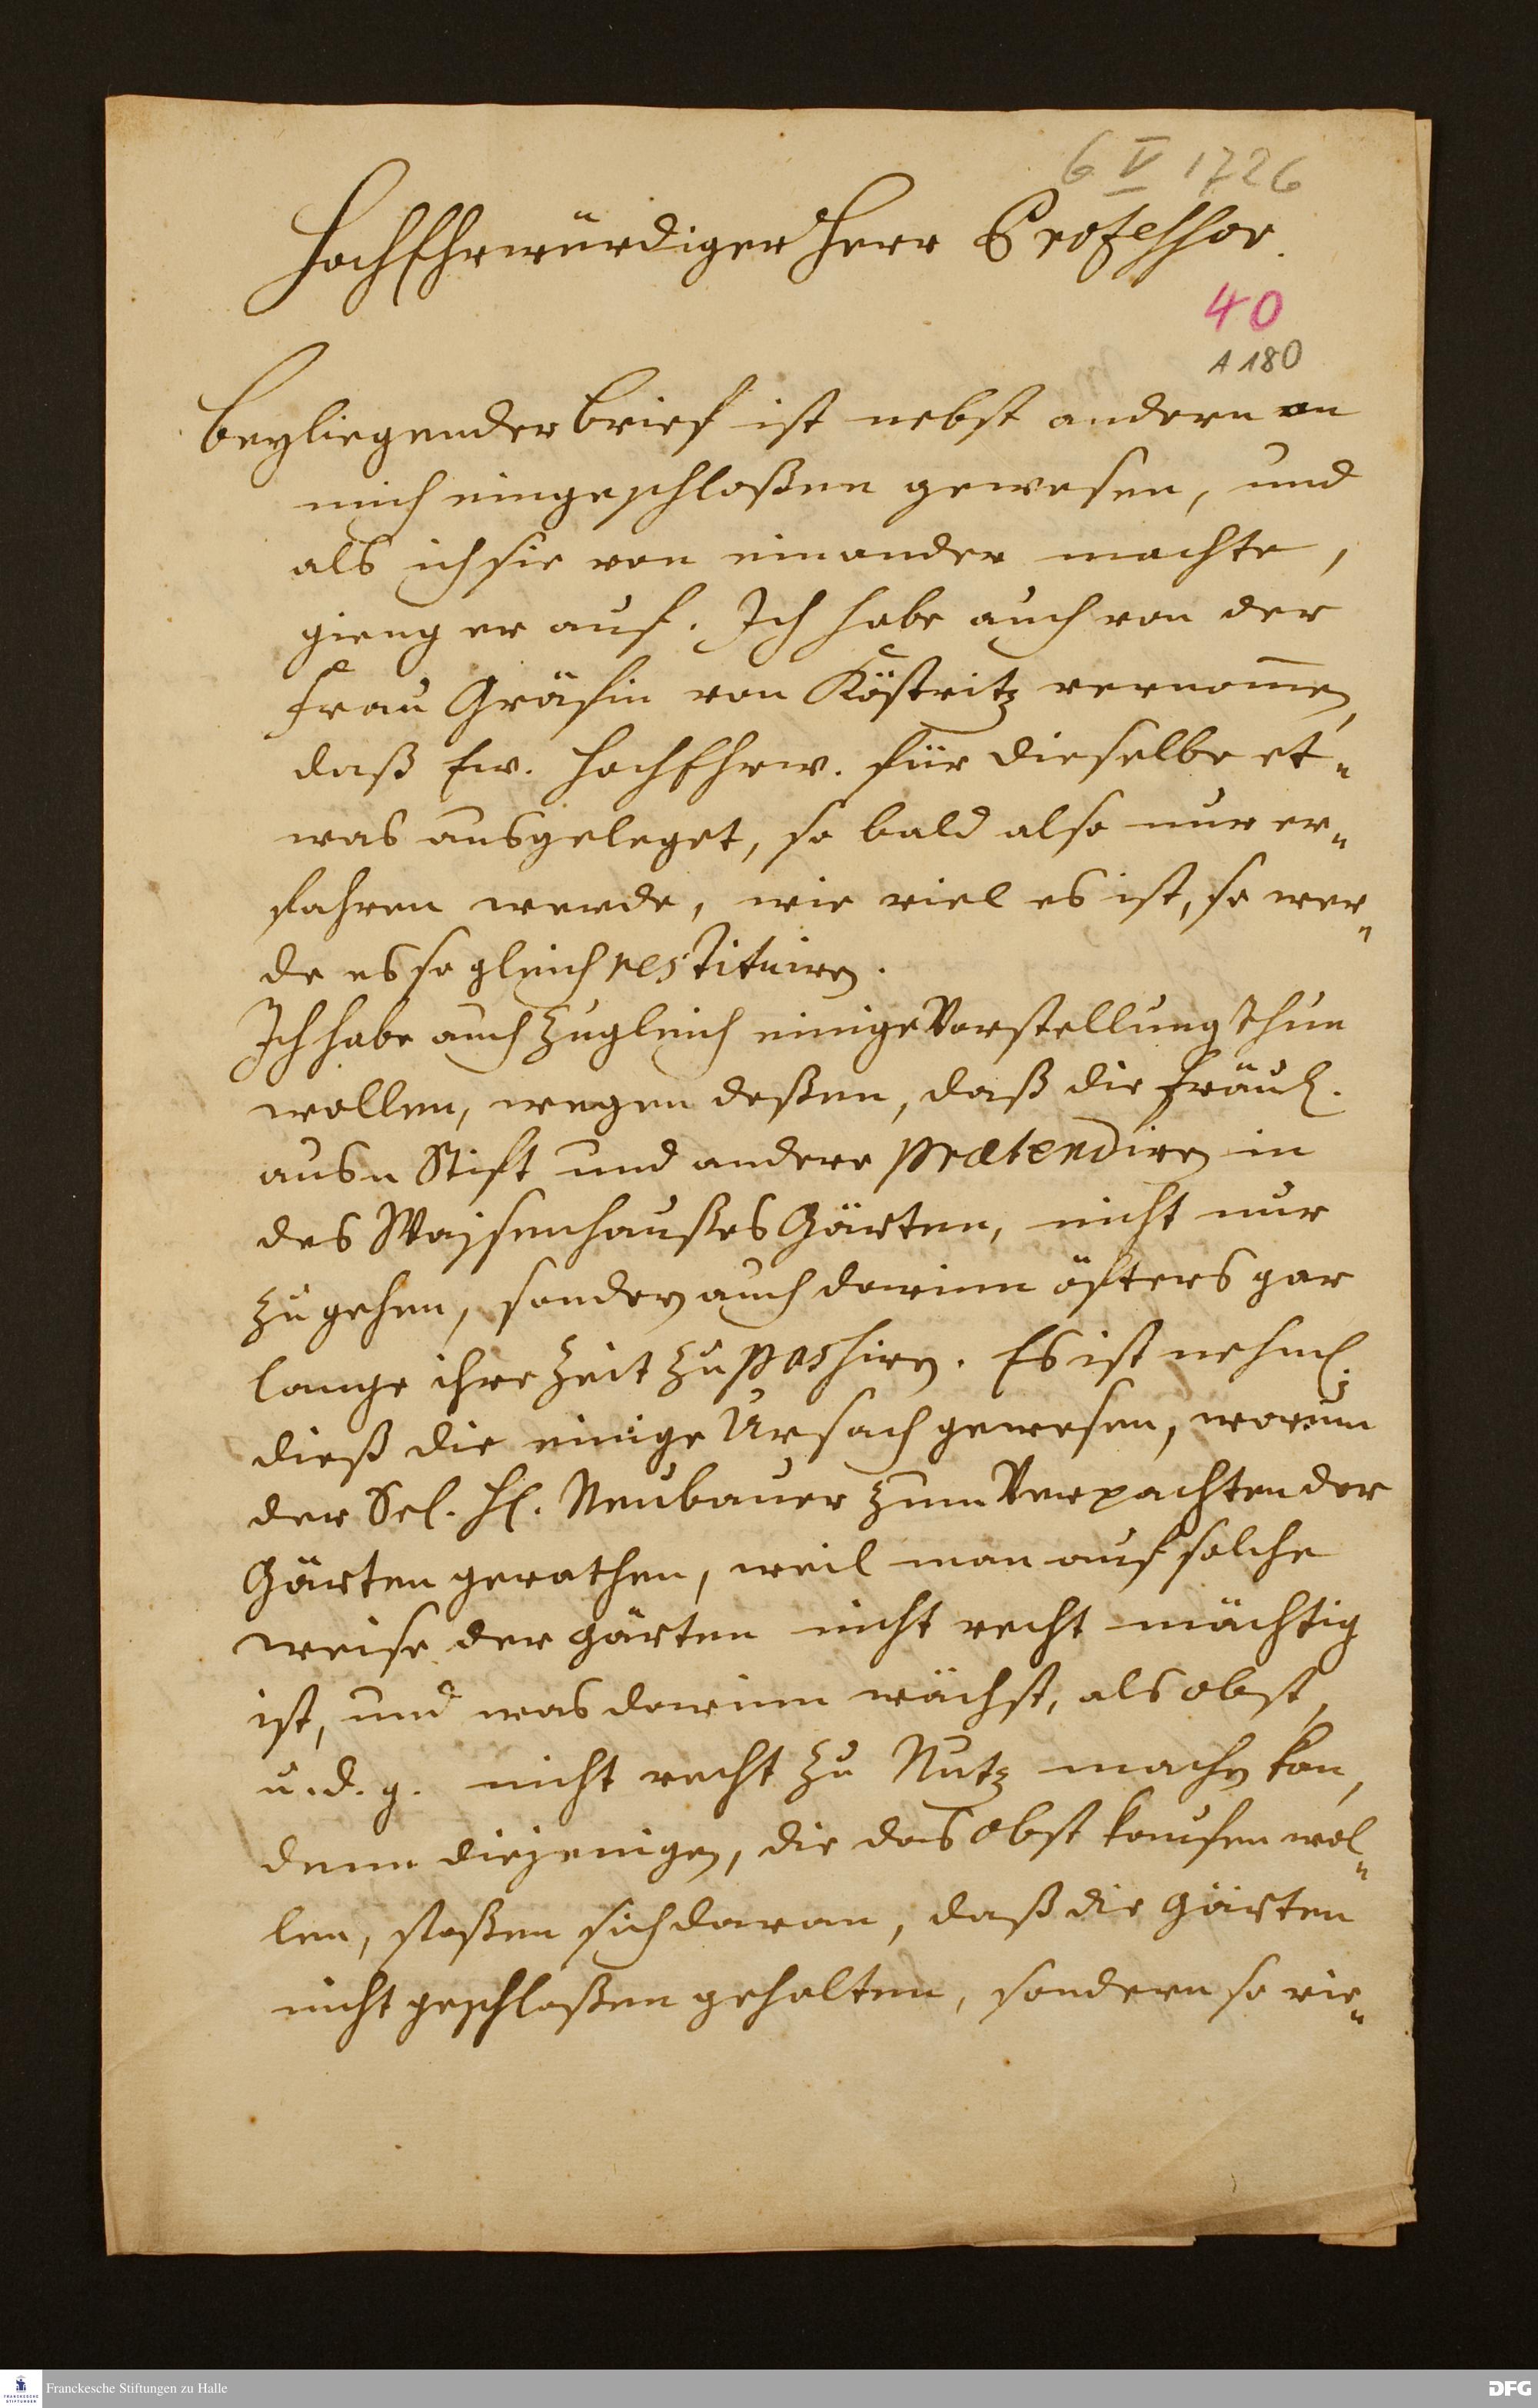 6 V 1726
HochEhrwürdiger Herr Professor.
40
A 180
Beyliegender Brief ist nebst andern an
mich eingeschloßen gewesen, und
als ich sie von einander machte,
gieng er auf. Ich habe auch von der
Frau Gräfin von Köstritz vernom̅en,
daß Ew. HochEhrw. für dieselbe et„
was ausgeleget, so bald also nur er„
fahren werde, wie viel es ist, so wer„
de es so gleich restituiren.
Ich habe auch zugleich einige Vorstellung thun
wollen, wegen deßen, daß die Fräul.
ausn Stift und andere prætendiren in
des Waysenhaußes Gärten, nicht nur
zu gehen, sondern auch darinn öfters gar
lange ihre Zeit zu passiren. Es ist nehml.
dieß die einige Ursach gewesen, worum
der Sel. H. Neubauer zum Verpachten der
Gärten gerathen, weil man auf solche
weise der Gärten nicht recht mächtig
ist, und was darinn wächst, als obst,
u. d. g. nicht recht zu Nutz machen kan,
denn diejenigen, die das Obst kaufen wol„
len, stoßen sich daran, daß die Gärten
nicht geschloßen gehalten, sondern so vie„
Franckesche Stiftungen zu Halle
FRANCKESCHE
STIFTUNGEN
DFG